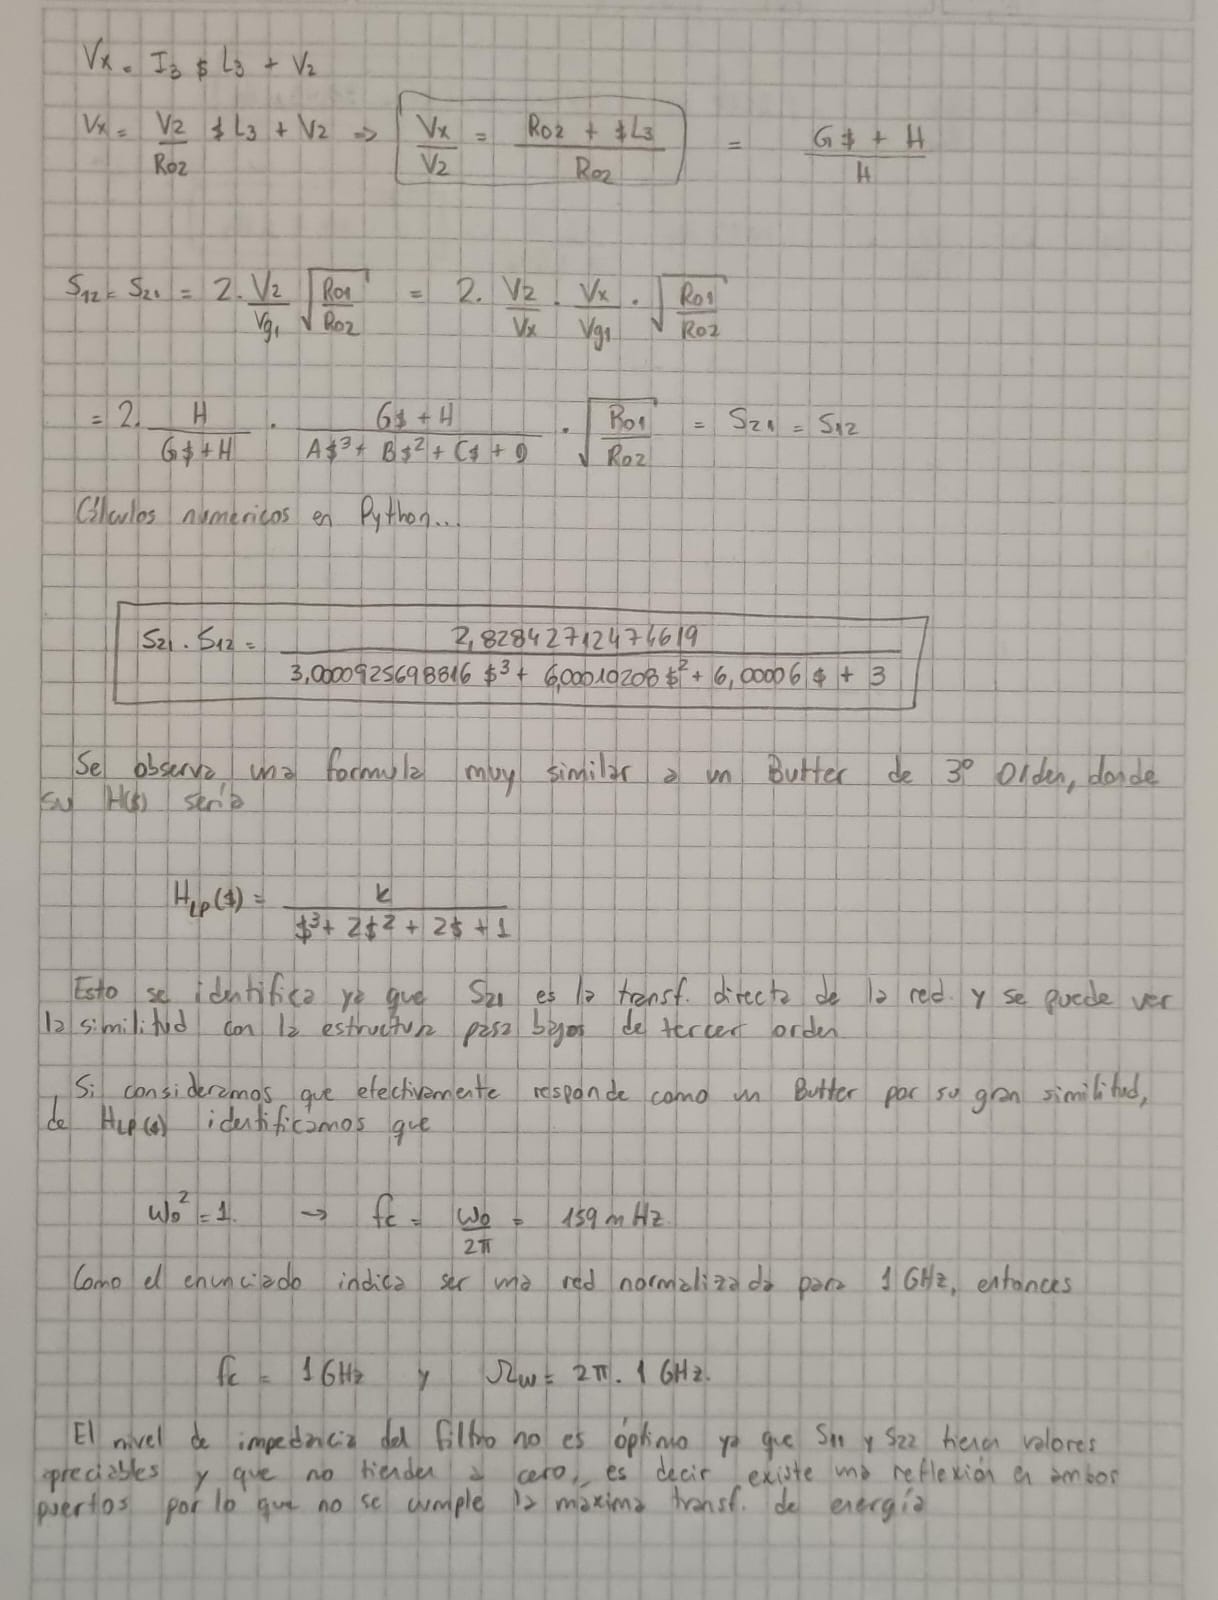 Vx = I3 $ L3 + V2
Vx = V2/Ro2 $ L3 + V2 => Vx/V2 = (Ro2 + $L3)/Ro2 = (G$ + H)/H
S12 = S21 = 2. V2/Vg1 √(Ro1/Ro2) = 2. V2/Vx . Vx/Vg1 . √(Ro1/Ro2)
= 2. H/(G$ + H) . (G$ + H)/(A$³ + B$² + C$ + D) . √(Ro1/Ro2) = S21 = S12
Cálculos numericos en Python...
S21 . S12 = 2,82842712474619/(3,0000925698816 $³ + 6,00010208 $² + 6,00006 $ + 3)
Se observa una formula muy similar a un Butter de 3º Orden, donde
su H($) sería
HLP($) = k/($³ + 2$² + 2$ + 1)
Esto se identifica ya que S21 es la transf. directa de la red y se puede ver
la similitud con la estructura pasa bajos de tercer orden
Si consideramos que efectivamente responde como un Butter por su gran similitud,
de HLP($) identificamos que
ωo² = 1. → fc = ωo/2π = 159 mHz.
Como el enunciado indica ser una red normalizada para 1 GHz, entonces
fc = 1 GHz y Ωω = 2π. 1 GHz.
El nivel de impedancia del filtro no es óptimo ya que S11 y S22 tienen valores
apreciables y que no tienden a cero, es decir existe una reflexión en ambos
puertos por lo que no se cumple la máxima transf. de energía